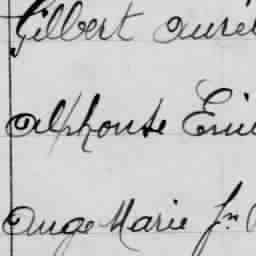 Gilbert Auré
Alphonse Emi
Ange Marie Jn